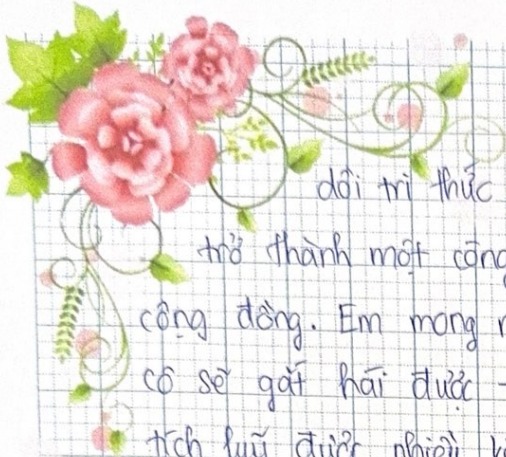 dồi tri thức
trở thành một công
cộng đồng. Em mong
cô sẽ gặt hái được
tích luỹ được nhiều